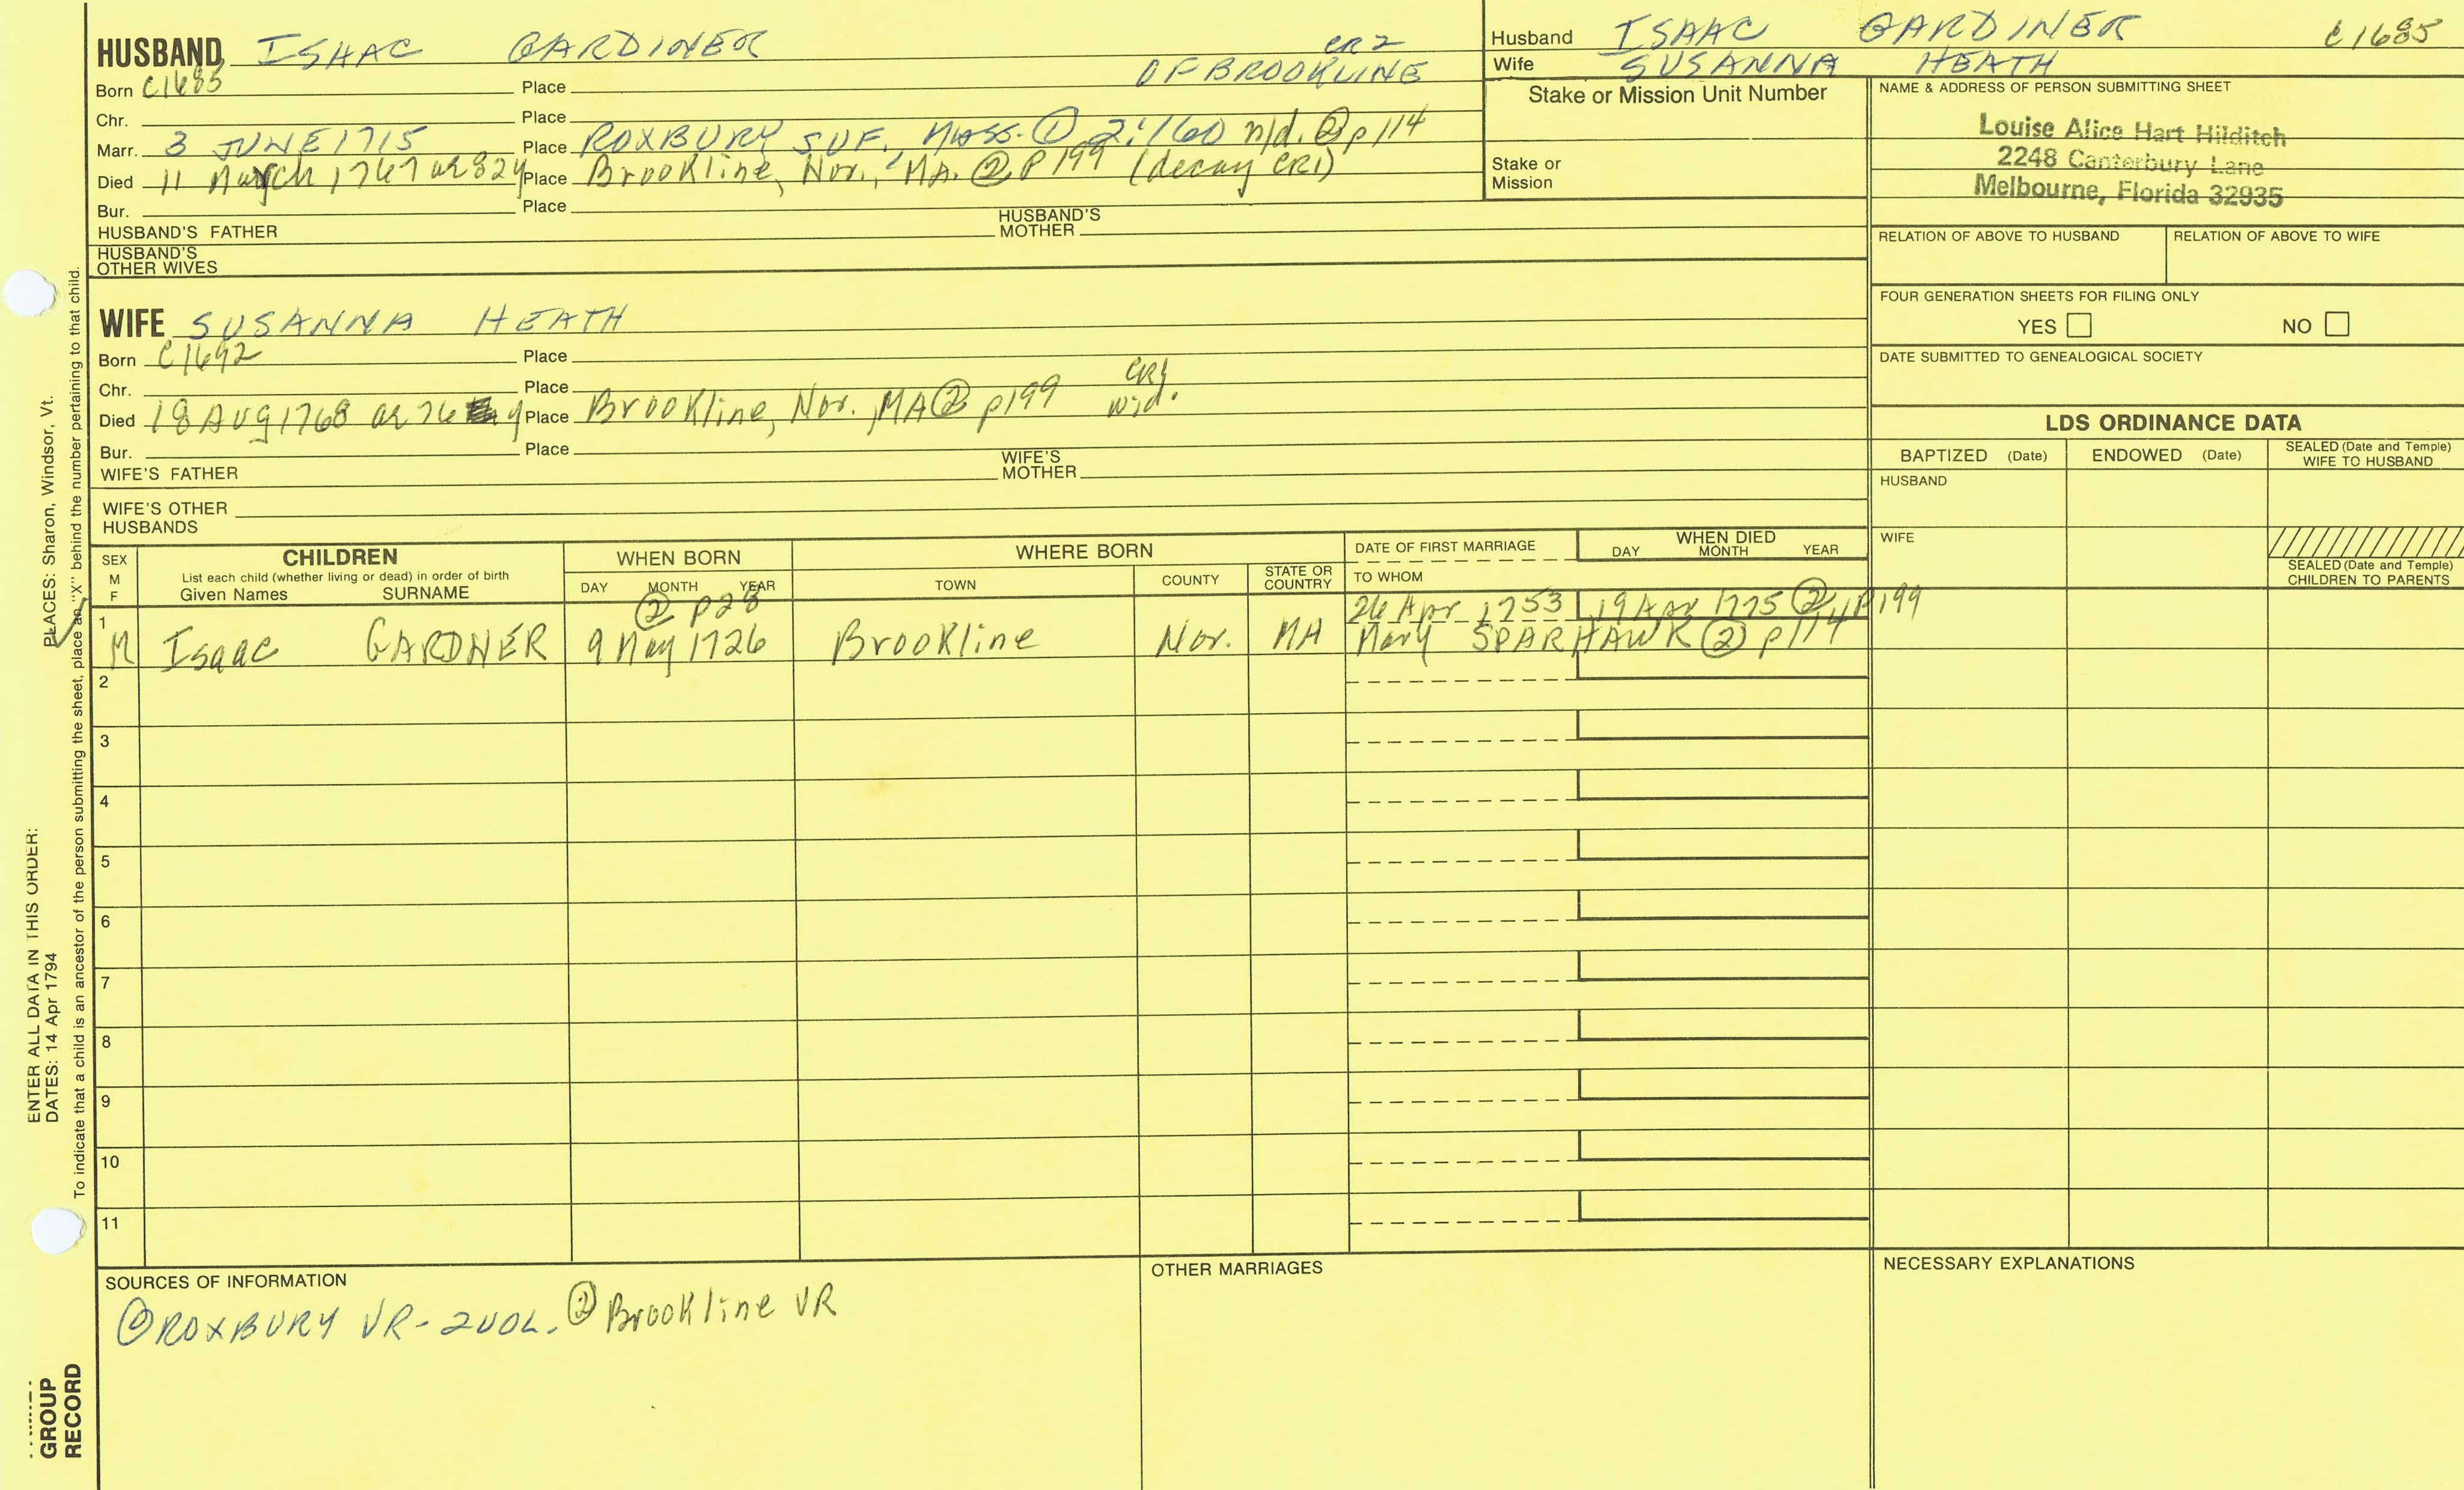 HUSBAND ISAAC GARDINER CR2
Born C1685 Place OF BROOKLINE
Chr. Place
Marr. 3 JUNE 1715 Place ROXBURY SUF., MASS. ① 2:160 n/d. ② p114
Died 11 March 1767 ae 82y Place Brookline, Nor., MA. ② P199 (decay CR1)
Bur. Place
HUSBAND'S FATHER HUSBAND'S MOTHER
HUSBAND'S OTHER WIVES
Husband ISAAC GARDINER C1685
Wife SUSANNA HEATH
Stake or Mission Unit Number
Stake or Mission
NAME & ADDRESS OF PERSON SUBMITTING SHEET
Louise Alice Hart Hilditch
2248 Canterbury Lane
Melbourne, Florida 32935
RELATION OF ABOVE TO HUSBAND RELATION OF ABOVE TO WIFE
FOUR GENERATION SHEETS FOR FILING ONLY
YES NO
DATE SUBMITTED TO GENEALOGICAL SOCIETY
WIFE SUSANNA HEATH
Born C1692 Place
Chr. Place CR1
Died 18 AUG 1768 ae 76 y Place Brookline, Nor., MA ② p199 wid.
Bur. Place
WIFE'S FATHER WIFE'S MOTHER
WIFE'S OTHER HUSBANDS
LDS ORDINANCE DATA
BAPTIZED (Date) ENDOWED (Date) SEALED (Date and Temple) WIFE TO HUSBAND
HUSBAND
WIFE
SEALED (Date and Temple) CHILDREN TO PARENTS
SEX M F
CHILDREN
List each child (whether living or dead) in order of birth
Given Names SURNAME
WHEN BORN
DAY MONTH YEAR
WHERE BORN
TOWN COUNTY STATE OR COUNTRY
DATE OF FIRST MARRIAGE
TO WHOM
WHEN DIED
DAY MONTH YEAR
② p28 26 Apr 1753 19 Apr 1775 ② p199
1 M Isaac GARDNER 9 May 1726 Brookline Nor. MA Mary SPARHAWK ② p114
2
3
4
5
6
7
8
9
10
11
SOURCES OF INFORMATION
① ROXBURY VR - 2 VOL. ② Brookline VR
OTHER MARRIAGES
NECESSARY EXPLANATIONS
ENTER ALL DATA IN THIS ORDER:
DATES: 14 Apr 1794
PLACES: Sharon, Windsor, Vt.
To indicate that a child is an ancestor of the person submitting the sheet, place an "X" behind the number pertaining to that child.
GROUP
RECORD